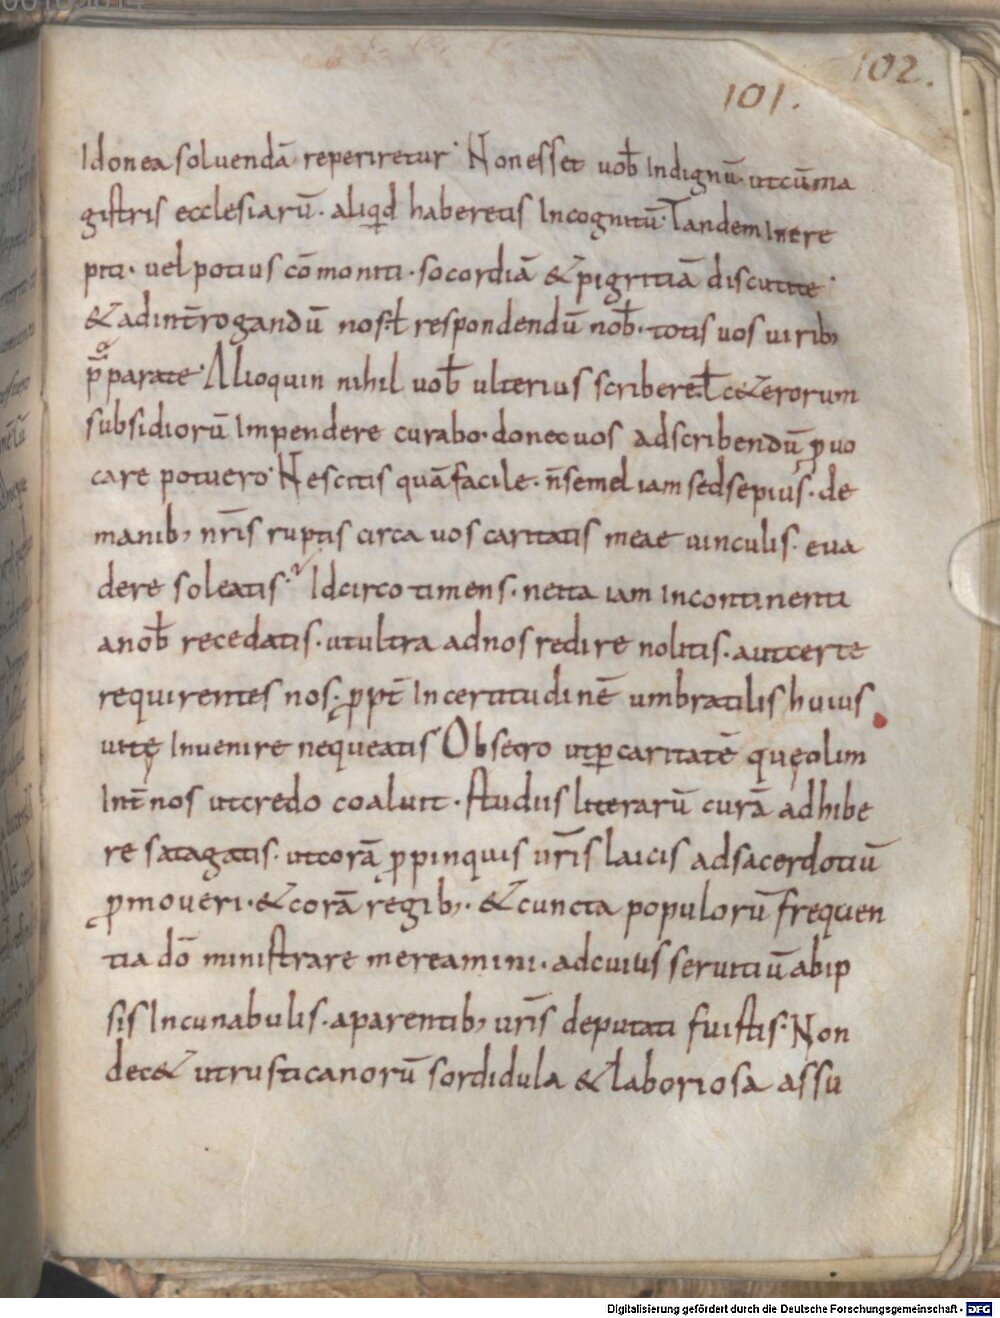 101.
102.
Idonea soluendā reperiretur· Non esset uob̄ Indignū· utcūma
gistris ecclesiarū· aliqd̄ haberetis Incognitū· Tandem Incre
piti· uel potius cōmoniti· socordiā & pigritiā discutite·
& adint̄rogandū nosł respondendū nob̄· totis uos uirib;
p̄parate· Alioquin nihil uob̄ ulterius scribere·ł c&erorum
subsidiorū Impendere curabo· donec uos adscribendū ꝓuo
care potuero· Nescitis quā facile· n̄ semel iam sed sepius· de
manib; nr̄is ruptis circa uos caritatis meae uinculis· eua
dere soleatis· Idcirco timens· ne ita iam Incontinenti
anob̄ recedatis· ut ultra adnos redire nolitis· aut certe
requirentes nos· ꝓpt̄ Incertitudinē umbratilis huius
uitę Inuenire nequeatis· Obsecro ut ꝑ caritatē quę olim
Int̄ nos ut credo coaluit· studiis literarū curā adhibe
re satagatis· ut corā ꝓpinquis ūr̄is laicis adsacerdotiū
ꝓmoueri· & corā regib;· & cuncta populorū frequen
tia dō ministrare mereamini· adcuius seruitiū abip
sis Incunabulis· aparentib; ur̄is deputati fuistis· Non
dec& ut rusticanorū sordidula & laboriosa assu
Digitalisierung gefördert durch die Deutsche Forschungsgemeinschaft - DFG